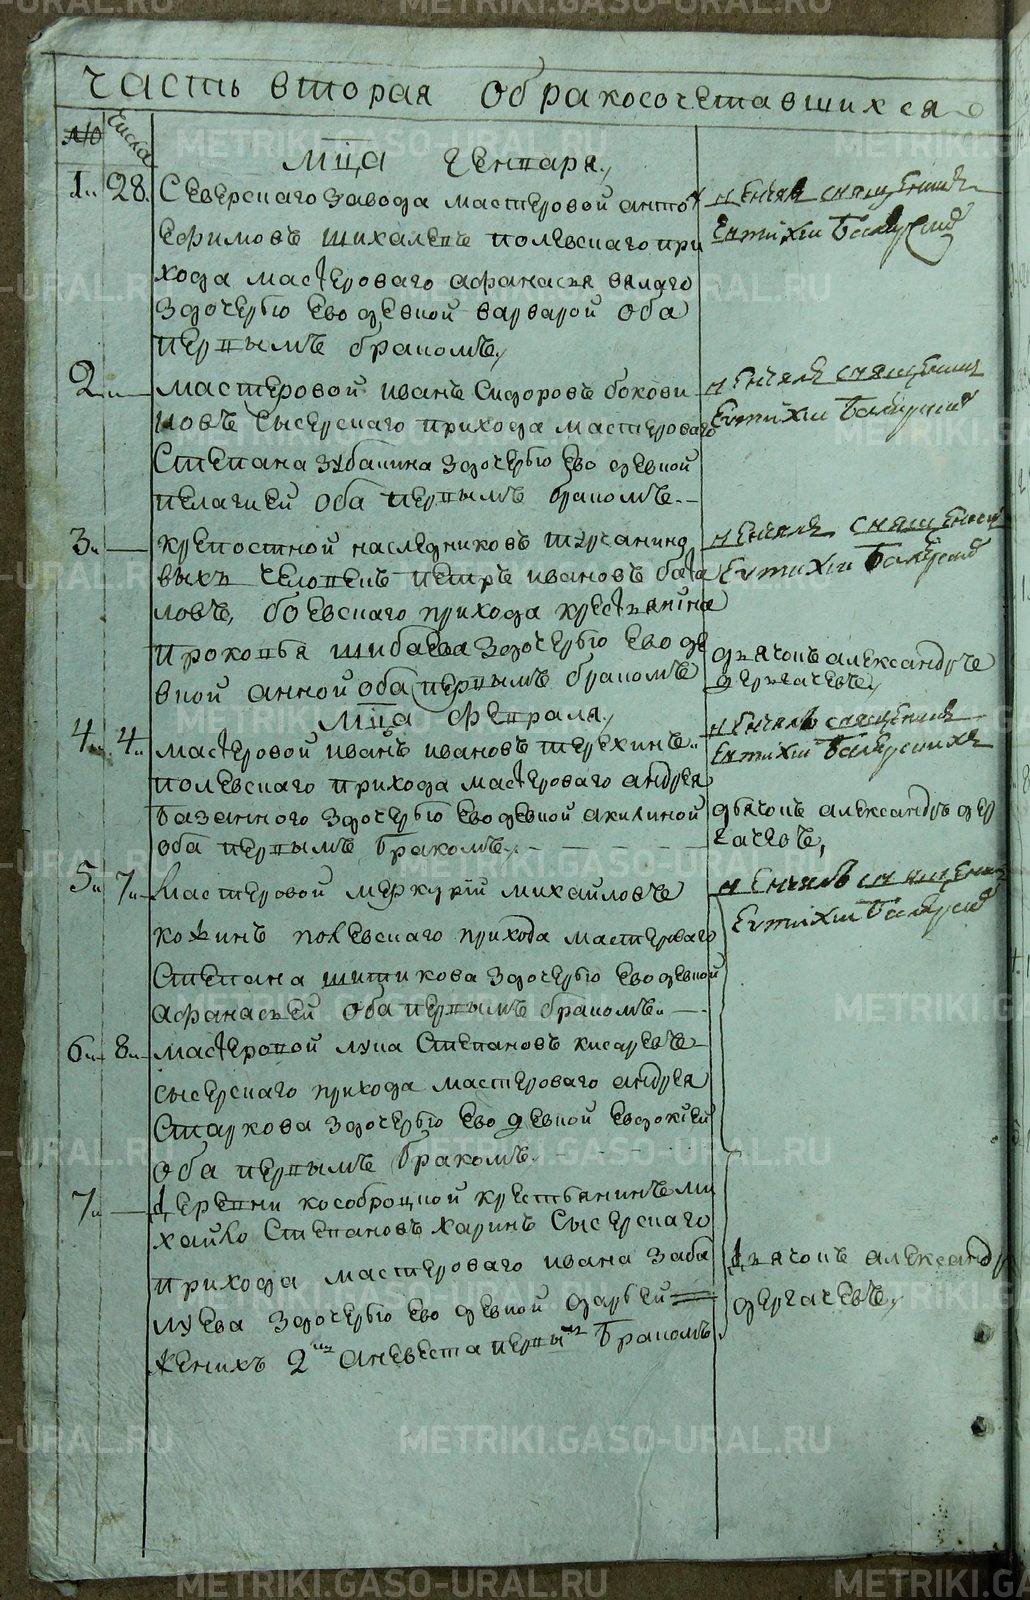 часть вторая обракосочетавшихся
№
числа
мца генваря,
1. 28. Северскаго завода мастеровой анто
Ефимовъ шихалевъ полевскаго при
хода мастероваго афанасья вялаго
здочерью Ево девкой варварой оба
первымъ бракомъ,
венчалъ священникъ
Евтихiи
2. мастеровой иванъ Сидоровъ бокови
ковъ Сысерскаго прихода мастероваго
Степана зубакина здочерью Ево девкой
пелагией оба первымъ бракомъ.
венчалъ священникъ
Евтихiи
3. крепостной наследниковъ турчанино
выхъ человекъ петръ ивановъ бата
ловъ, боевскаго прихода крестьянина
прокопья шибаева здочерью Ево де
вкой анной оба первымъ бракомъ
венчалъ священникъ
Евтихiи
дьячокъ александръ
дергачевъ,
мца февраля,
4. 4. мастеровой иванъ ивановъ терехинъ
полевскаго прихода мастероваго андрея
базанного здочерью Ево девкой акилиной
оба первымъ бракомъ,
венчалъ священникъ
Евтихiи
дьячокъ александръ дер
гачевъ,
5. 7. мастеровой меркурiй михайловъ
кожинъ полевскаго прихода мастероваго
Степана шитикова здочерью Ево девкой
афанасьей оба первымъ бракомъ.
венчалъ священникъ
Евтихiи
6. 8. мастеровой лука Степановъ кисаревъ
сысерскаго прихода мастероваго андрея
Старкова здочерью Ево девкой Евдокiей
оба первымъ бракомъ.
7. деревни кособроцкой крестьянинъ ми
хайло Степановъ харинъ Сысерскаго
прихода мастероваго ивана заба
луева здочерью Ево девкой дарьей
жених 2мъ аневеста первымъ бракомъ
дьячокъ александръ
дергачевъ,
METRIKI.GASO-URAL.RU